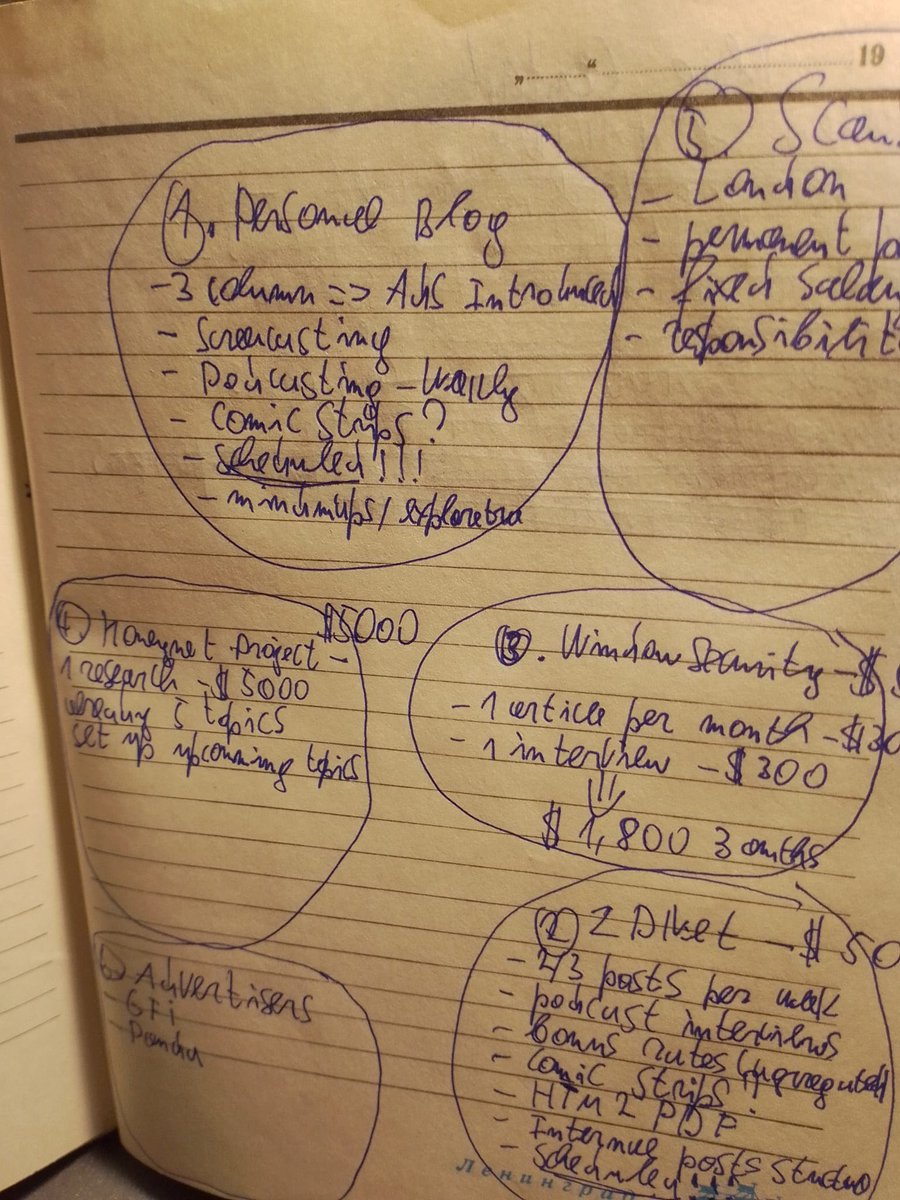 „ “ 19
1. Personal Blog
- 3 column => Ads Introduced
- Screencasting
- Podcasting - Weekly
- Comic Strips?
- Scheduled!!!
- mindmaps/
5 Scan
- London
- permanent
- fixed
- responsibilit
4 Honeynet Project - $5000
1 research - $5000
already 5 topics
set up upcomming topics
3. WindowSecurity - $
- 1 article per month - $30
- 1 interview - $300
$1,800 3 onths
2 ZDNet - $50
- 2/3 posts per week
- podcast interviews
- bonus rates
- Comic strips
- HTM2PDF
- Internal posts
- Scheduled!!!
6 Advertisers
- GFi
- Panda
Ленинград